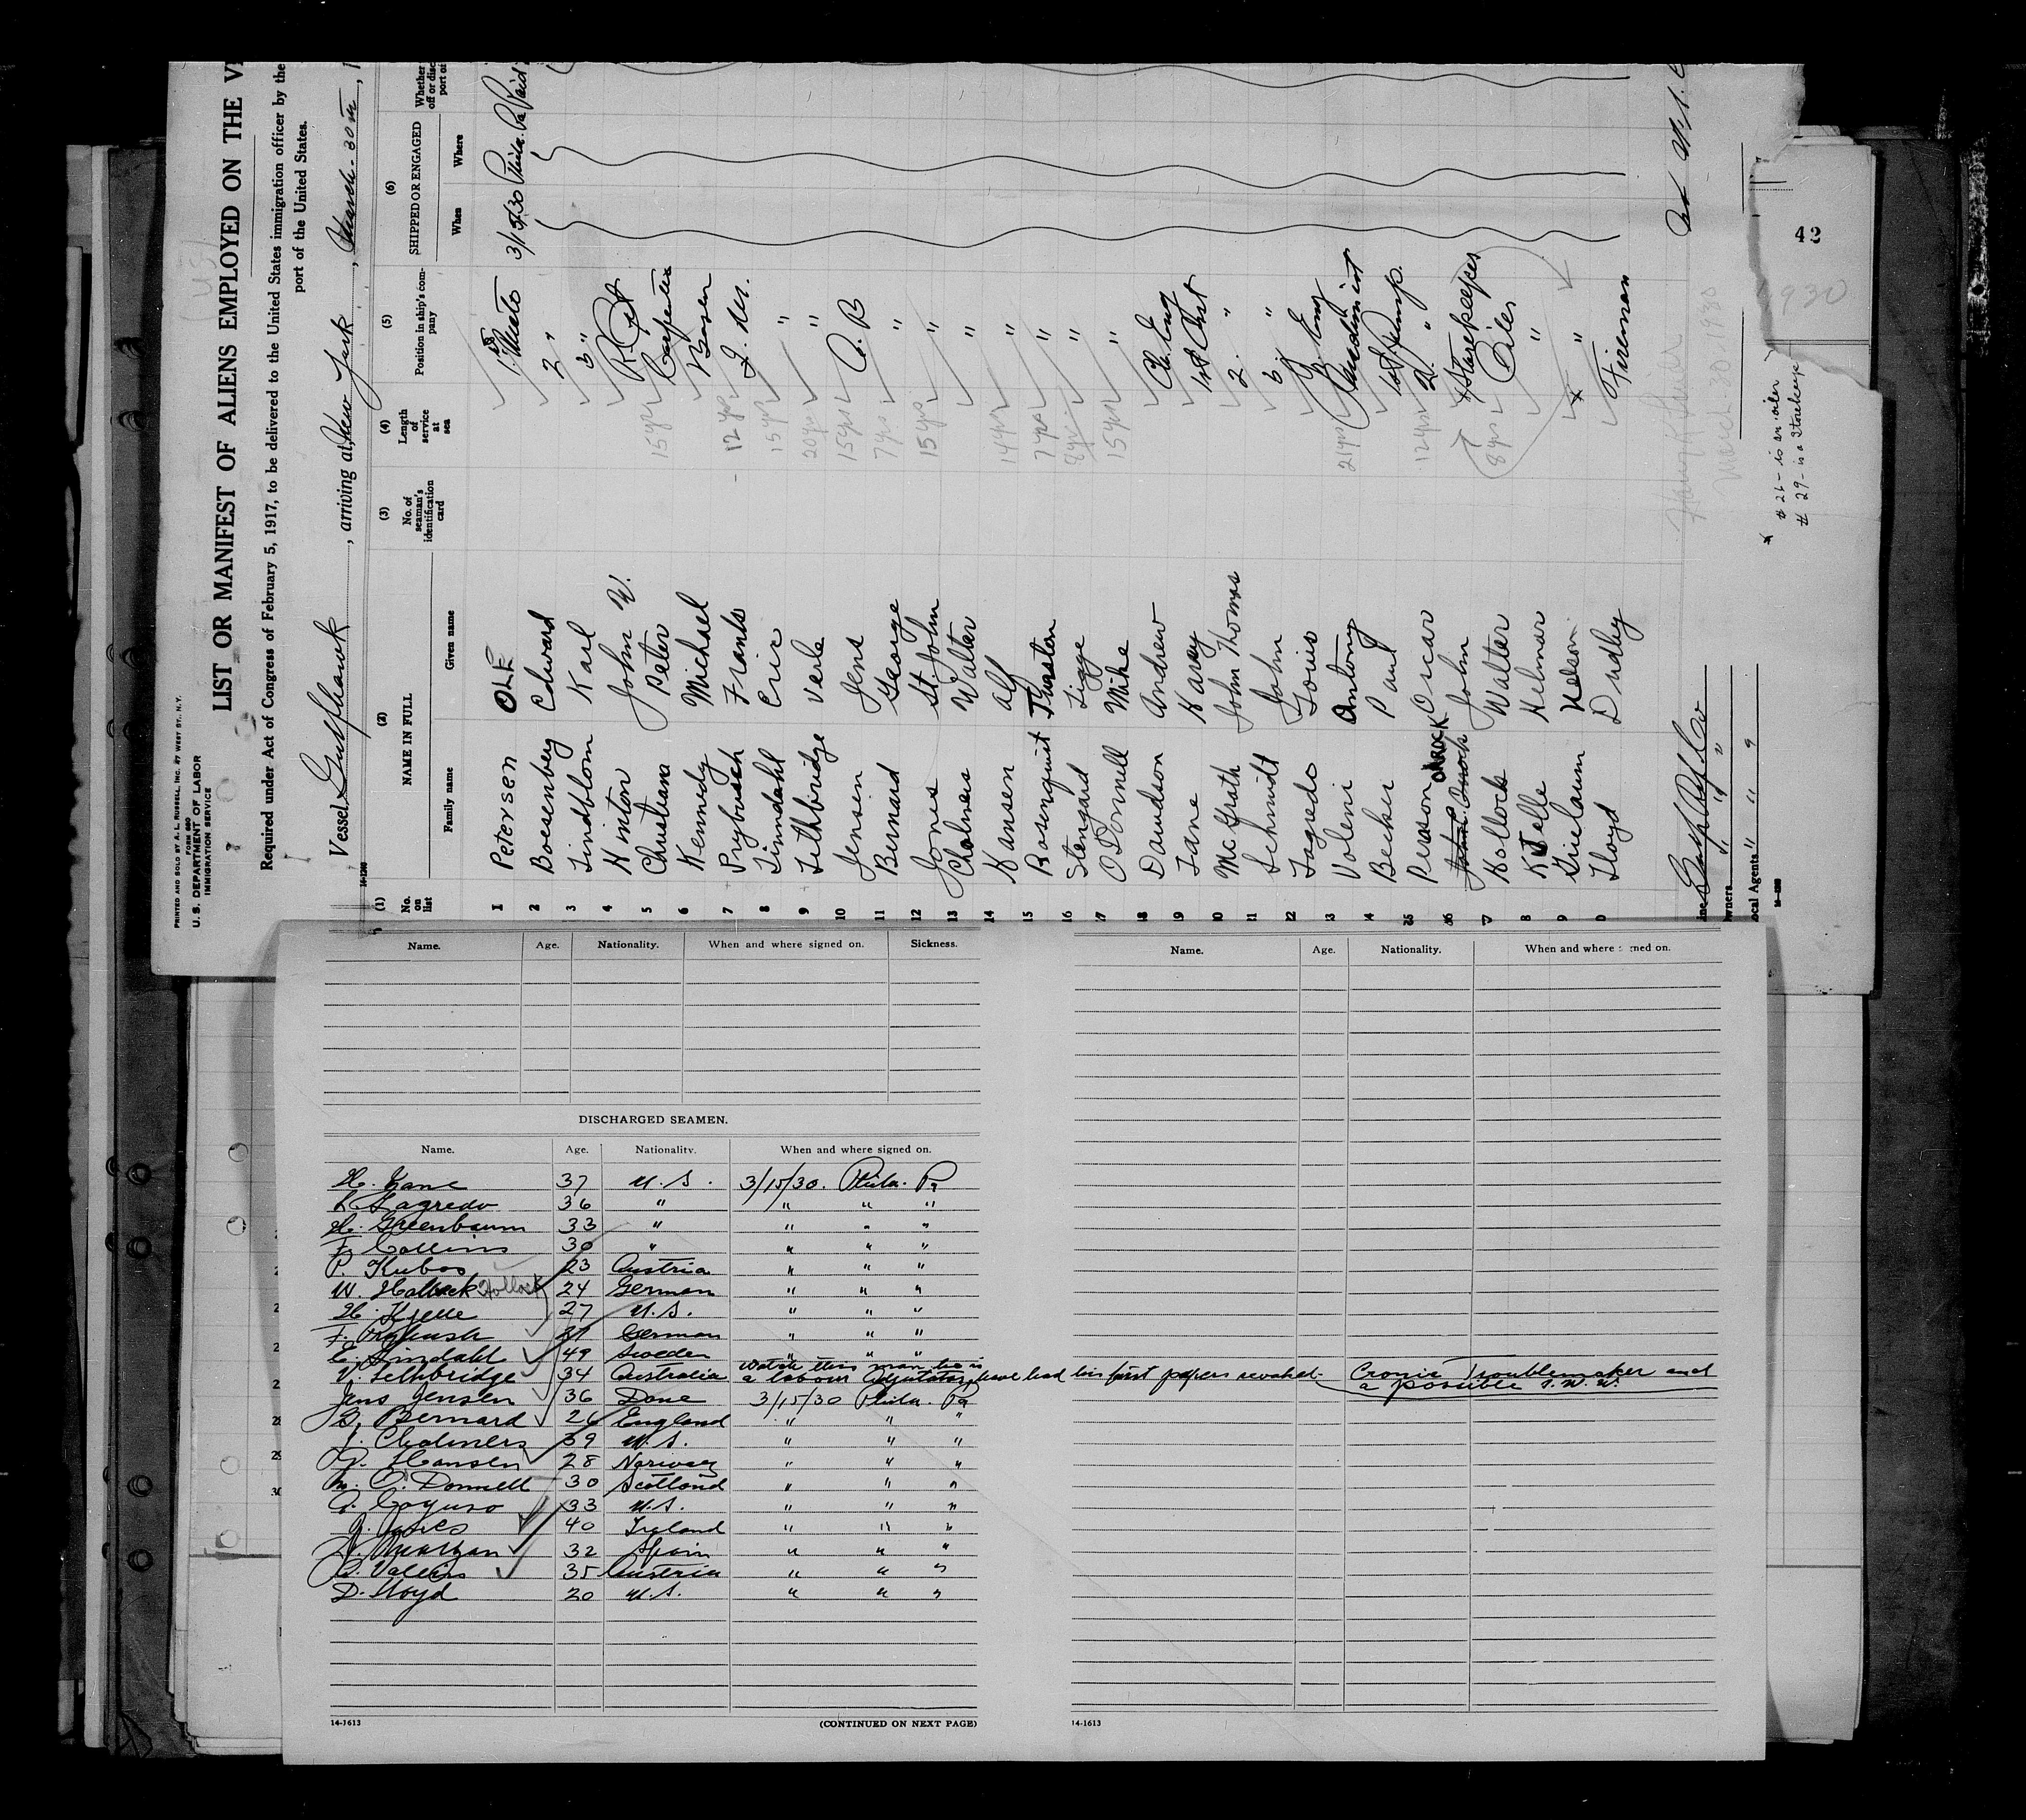 PRINTED AND SOLD BY A. L. RUSSELL, INC. 27 WEST ST. N.Y.
FORM 680
U. S. DEPARTMENT OF LABOR
IMMIGRATION SERVICE
LIST OR MANIFEST OF ALIENS EMPLOYED ON THE
Required under Act of Congress of February 5, 1917, to be delivered to the United States immigration officer by the
port of the United States.
Vessel Gulfhawk, arriving at New York, March - 30th, 1
(1) (2) (3) (4) (5) (6)
No. on list NAME IN FULL No. of seaman's identification card Length of service at sea Position in ship's company SHIPPED OR ENGAGED Whether
Family name Given name When Where
1 Petersen OLE 1st Mate 3/15/30 Phila. Pa Paid
2 Boesenberg Edward 2 "
3 Lindblom Karl 3 "
4 Hinton John W.
5 Christiana Peter 15 yrs Carpenter
6 Kennedy Michael Bosen
7 Prybusch Frank 12 yrs
8 Linndahl Eric 15 yrs "
9 Lithbridge Verle 20 yrs "
10 Jensen Jens 15 yrs A. B
11 Bernard George 7 yrs "
12 Jones St. John 15 yrs "
13 Chalmers Walter "
14 Hansen Alf 14 yrs "
15 Rosenquist Thurston 7 yrs "
16 Stengard Ligge 8 yrs "
17 O Donnell Mike 15 yrs "
18 Davidson Andrew Ch. Eng
19 Lane Harry 1st Asst
20 McGrath John Thomas 2. "
21 Schmidt John 3 "
22 Lagredo Louis
Voleni Antony 21 yrs
Becker Paul 1st Pump.
25 Pearson Oscar 12 yrs 2. "
26 OUROCK John Storekeeper
7 Hollock Walter 8 yrs Oiler
8 KJelle Helmar "
9 Grielaum Nelson "
0 Lloyd Dudley Fireman
Gulf Ref Co
Owners " " "
Local Agents " " "
March - 30 - 1930
# 26 - is an oiler
# 29 - is a Storekeeper
42
1930
Name. Age. Nationality. When and where signed on. Sickness.
DISCHARGED SEAMEN.
Name. Age. Nationality. When and where signed on.
H. Lane 37 U. S. 3/15/30. Phila. Pa
L Lagredo 36 " " " "
H. Greenbaum 33 " " " "
F. Collins 30 " " " "
P. Kubos 23 Austria " " "
W. Hollock Hollock 24 German " " "
H. Kjelle 27 U. S. " " "
F. Prybush German " " "
E. Lindahl 49 Sweden " " "
V. Lethbridge 34 Australia Watch this man he is
a labour agitator, have had his first papers revoked - Cronic Troublemaker and
a possible I. W. W.
Jens Jensen 36 Dane 3/15/30 Phila. Pa
G. Bernard 26 England " " "
J. Chalmers 39 U. S. " " "
A. Hansen 28 Norway " " "
M. O. Donnell 30 Scotland " " "
33 U. S. " " "
J. Jones 40 Ireland " " "
32 Spain " " "
35 Austria " " "
D. Lloyd 20 U. S. " " "
14-1613 (CONTINUED ON NEXT PAGE)
Name. Age. Nationality. When and where signed on.
14-1613